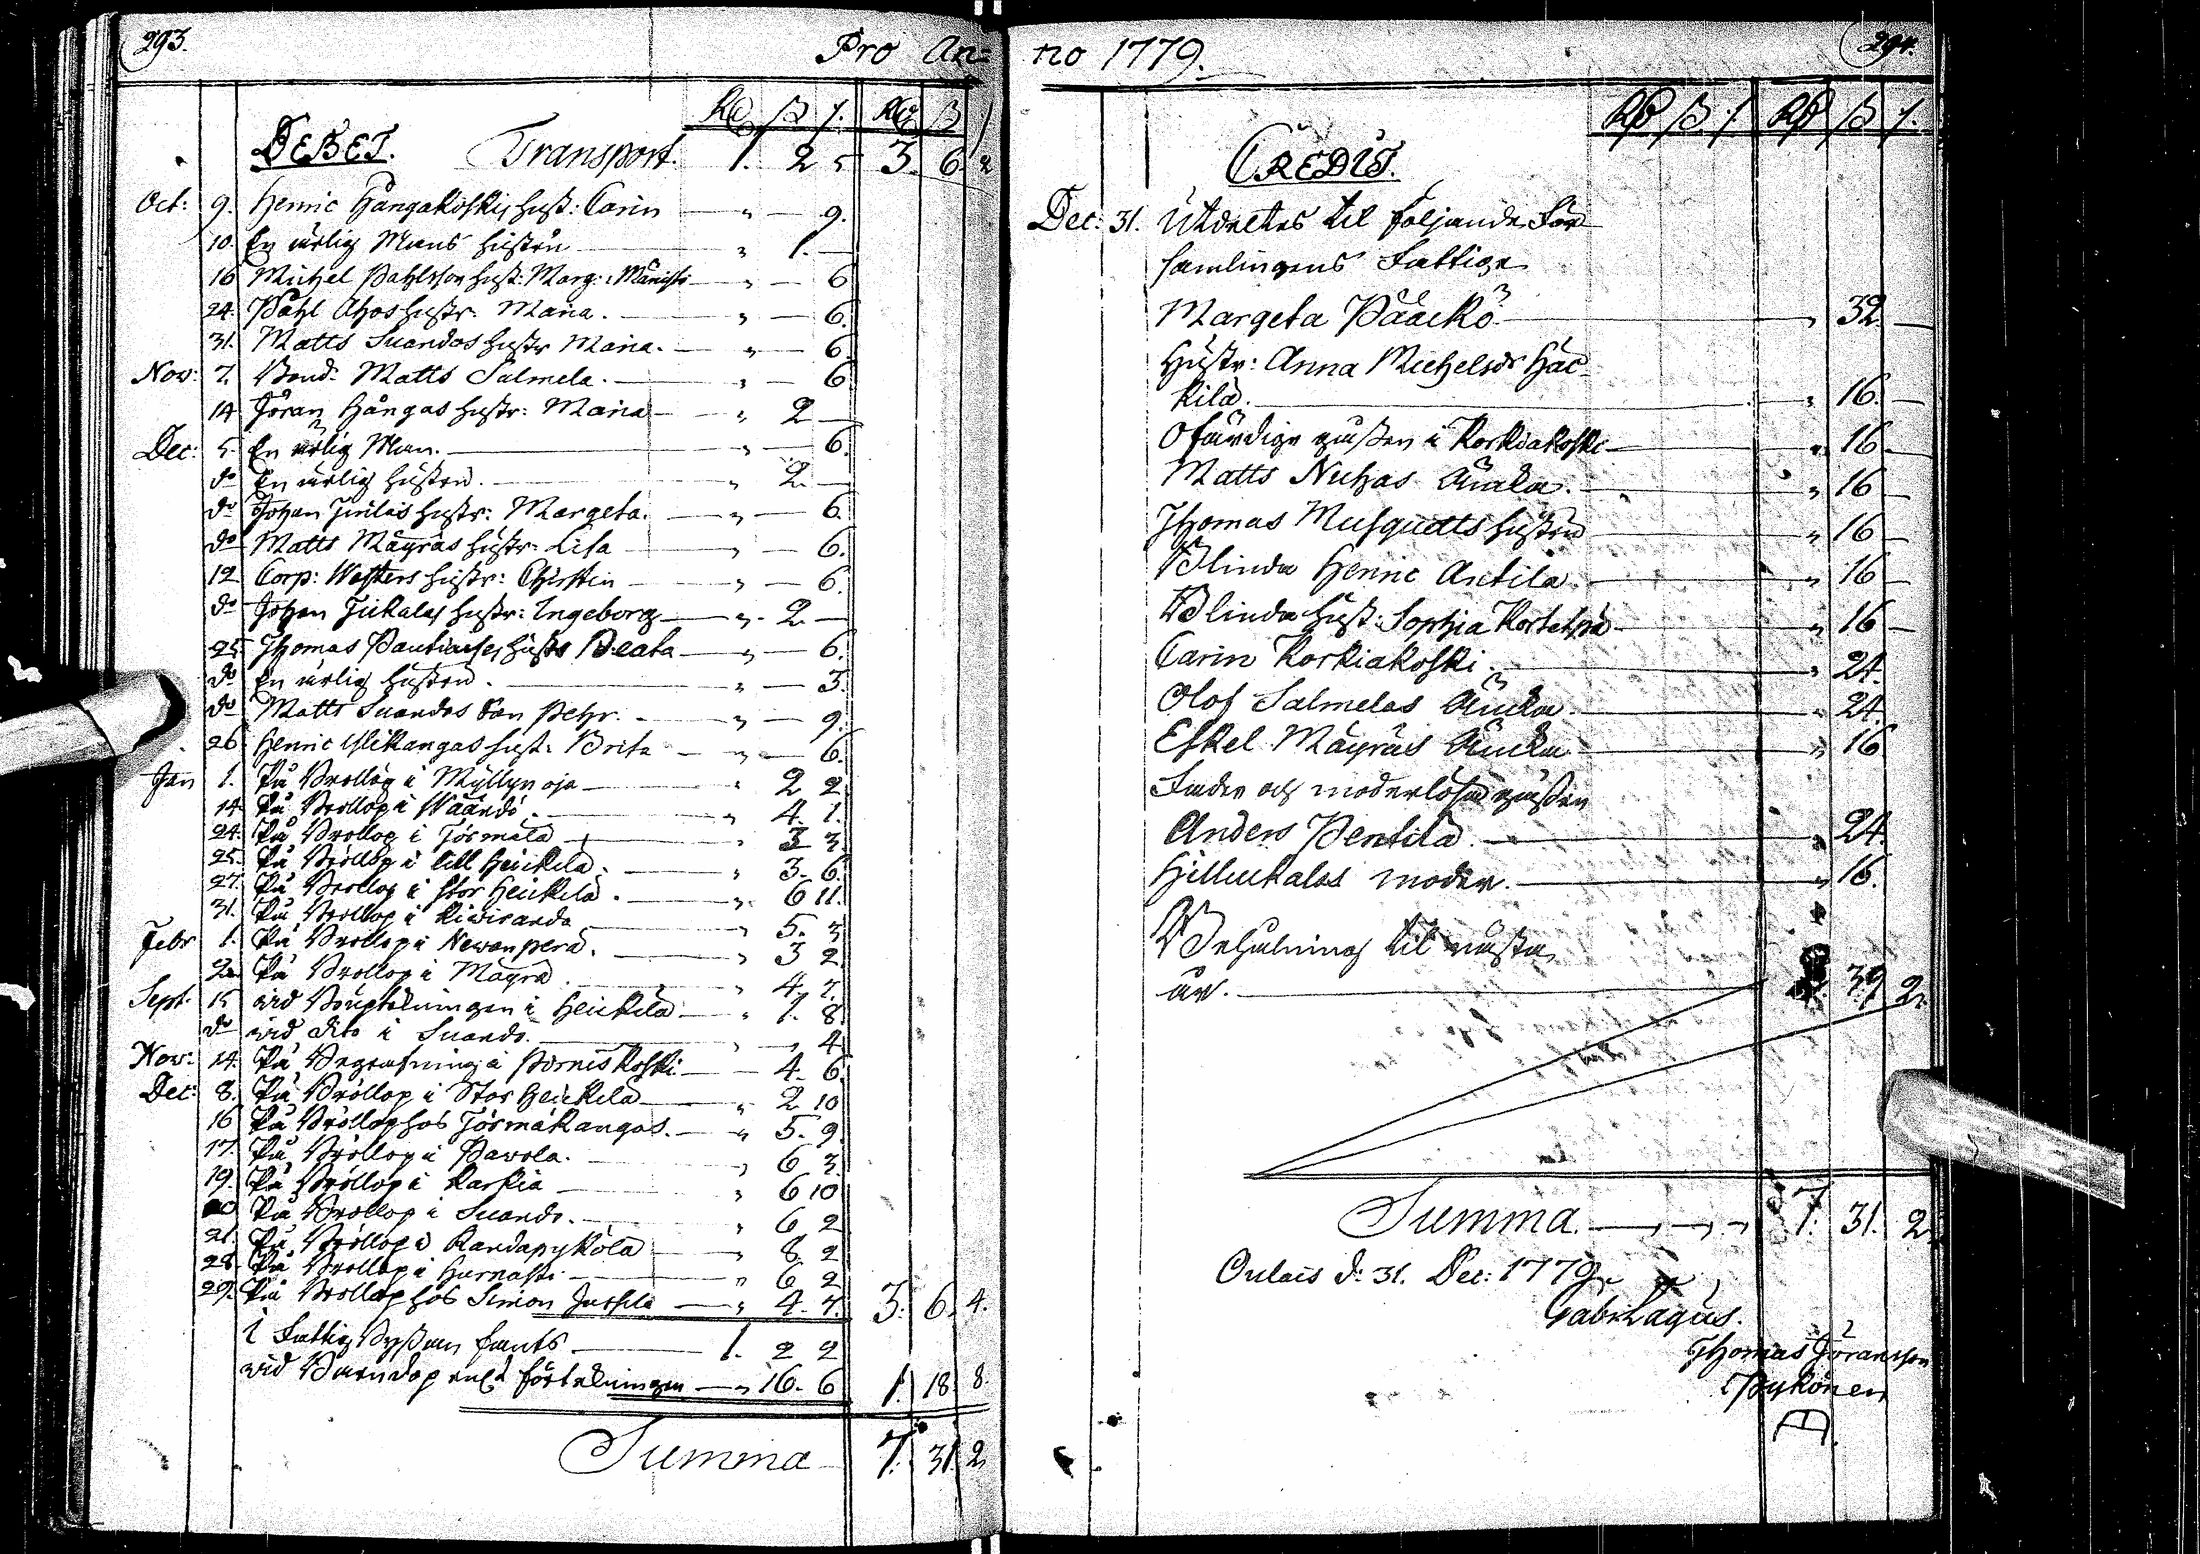 293.
Pro An=
Rd ß /. Rd ß /
DEBET. Transport. 1. 2 5 3. 6. 2
Oct: 9. Henric Hångakoskis hust: Carin — „ — 9.
10. En ärlig Mans hustru — „ 1. —
16 Michel Pahlsson hust: Marg: Mänisti — „ — 6
24. Påhl Ahos hustr. Maria. — „ — 6.
31. Matts Suandos hustr Maria. — „ — 6
Nov: 7. Bond. Matts Salmela. — „ — 6
14 Jöran Hångas hustr: Maria — „ 2 —
Dec: 5. En ärlig Man. — „ — 6.
do En ärlig hustru. — „ 2. —
do Johan Juulas hustr: Margeta. — „ — 6.
do Matts Mäyräs hustr. Lisa — „ — 6.
12 Corp: Westers hustr: Christin — „ — 6.
do Johan Jukalas hustr: Ingeborg — „ 2. —
25. Thomas hustr Beata — „ — 6.
do En ärlig hustru. — „ — 3.
do Matts Suandos Son Pehr. — „ — 9.
26. Henric Ylikangas hust: Brita — „ — 6.
Jan 1. På Bröllop i Myllyn oja — „ 2 2
14. På Bröllop i Wäärdi. — „ 4. 1.
24. På Bröllop i Törmälä — „ 3 3
25. På Bröllop i Lill Heickilä. — „ 3. 6.
27. På Bröllop i Stor Heickilä. — „ 6 11.
31. På Bröllop i Kiwiranda — „ 5. 3
Febr 1. På Bröllop i Newanperä. — „ 3 2
2. På Bröllop i Mäyrä — „ 4. 7.
Sept. 15 wid i Heickilä — „ 7. 8.
do wid dito i Suando. — „ „ 4
Nov: 14. På Begrafning i Pirneskoski — 4. 6.
Dec: 8. På Bröllop i Stor Heickilä — „ 2 10
16 På Bröllop hos Törmäkangas. — „ 5. 9.
17. På Bröllop i Pawola. — „ 6 3.
19. På Bröllop i Karkia — „ 6 10
20 På Bröllop i Suando. — „ 6 2
21. På Bröllop i Randapyköla — „ 8. 2
28. På Bröllop i Hurnasti — „ 6 2
29. På Bröllop hos Simon Jussila — „ 4. 7. 3. 6. 4.
I Fattig Bössan fants — 1. 2 2
wid Barndop enligt förtekningen — „ 16. 6 1. 18. 8.
Summa 7. 31. 2
no 1779.
294.
Rd ß /. Rd ß /.
CREDIT.
Dec: 31. Utdeltes til följande För
samlingens Fattige
Margeta Pääckö — „ 32. —
Hustr: Anna Michelsdr Häc-
kilä. — „ 16. —
Ofärdige gåssen i Korkiakoski — „ 16. —
Matts Nuhas Änka. — „ 16 —
Thomas Musquetts hustru — „ 16 —
Blinda Henric Antila. — „ 16 —
Blinda hust: Sophia Kortetsiä — „ 16 —
Carin Korkiakoski. — „ 24.
Olof Salmelas Änka — „ 24.
Eskel Mäyräs Änka — „ 16
Fader och moderlösa gåssen
Anders Pentilä. — „ 24.
Hillukalas moder. — „ 16.
Behålning til nästa
år. — 39 2.
Summa. — 7. 31. 2.
Oulais d: 31. Dec: 1779
Gabr Lagus.
Thomas Jöransson
Pykönen